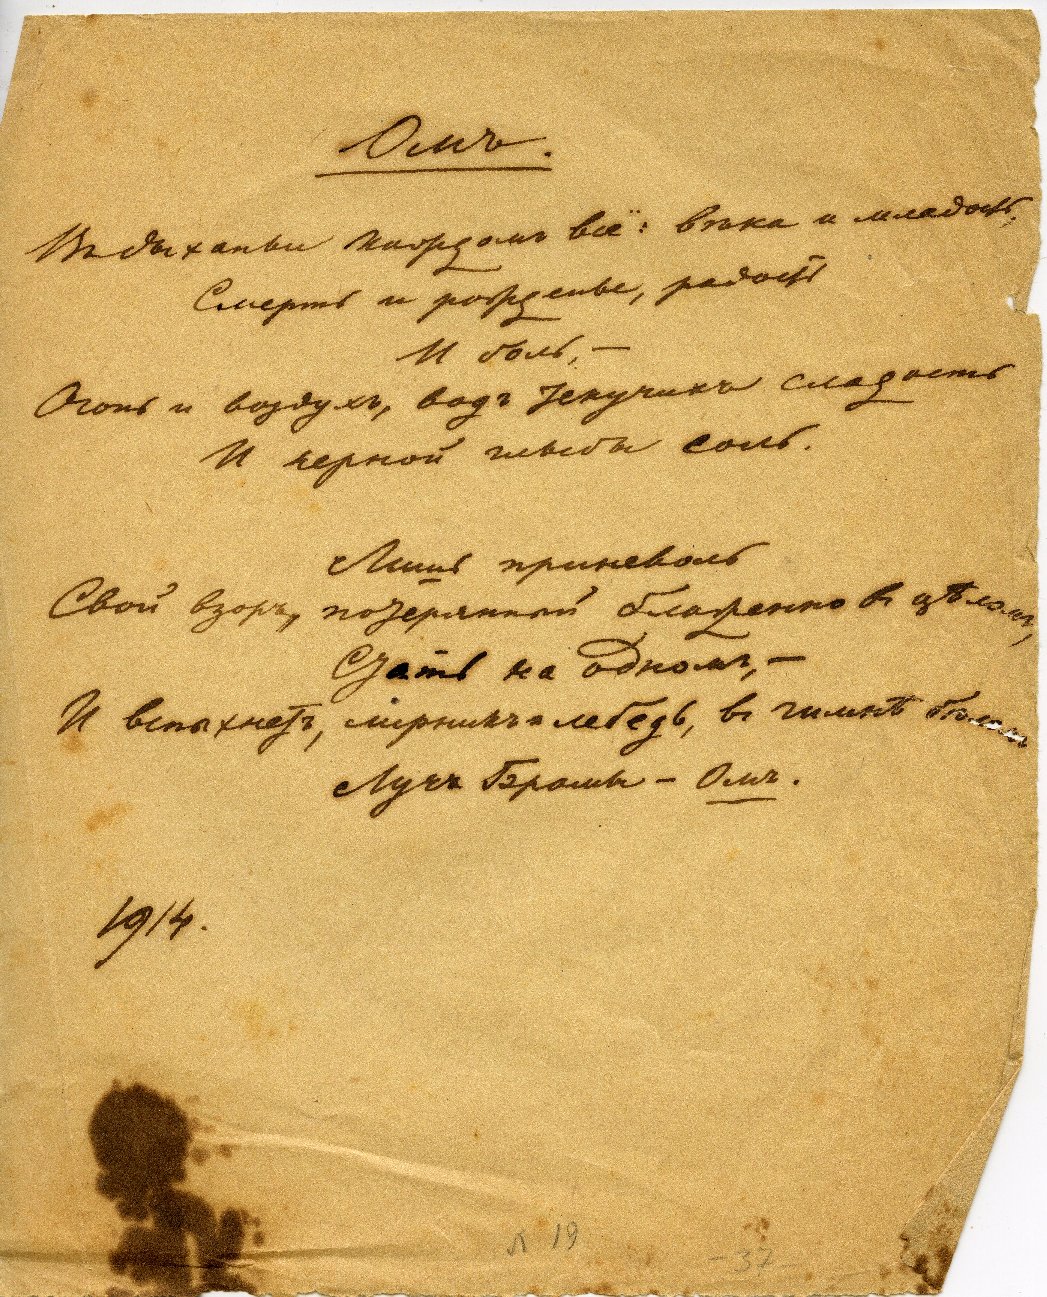 Омъ.
Въ дыханьи каждомъ всё: вѣка и младость,
Смерть и рожденье, радость
И боль, –
Огонь и воздухъ, водъ текучихъ сладость
И черной глыбы соль.
Лишь приневоль
Свой взоръ, потерянный блаженно въ цѣломъ,
Стать на одномъ, –
И вспыхнетъ, лебедь, въ гимнѣ
Лучъ Брамы – Омъ.
1914.
л 19
– 37 –